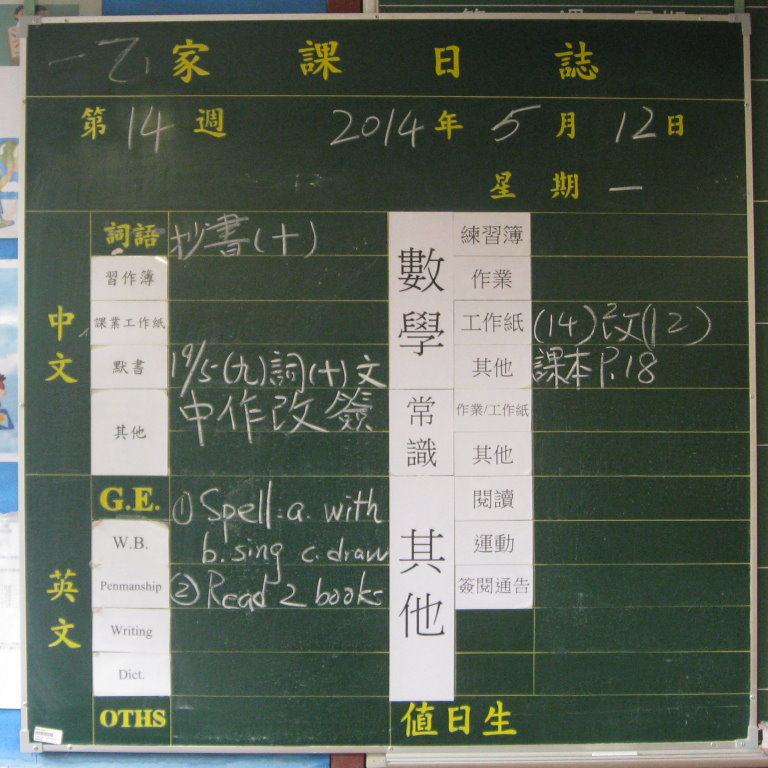 一乙 家課日誌
第14週 2014年5月12日
星期一
中文
詞語 抄書(十)
習作簿
課業工作紙
默書 19/5(九)詞(十)文
其他 中作改簽
英文
G.E. ① Spell: a. with
W.B. b. sing c. draw
Penmanship ② Read 2 books
Writing
Dict.
OTHS
數學
練習簿
作業
工作紙 (14)改(12)
其他 課本P.18
常識
作業/工作紙
其他
其他
閱讀
運動
簽閱通告
值日生